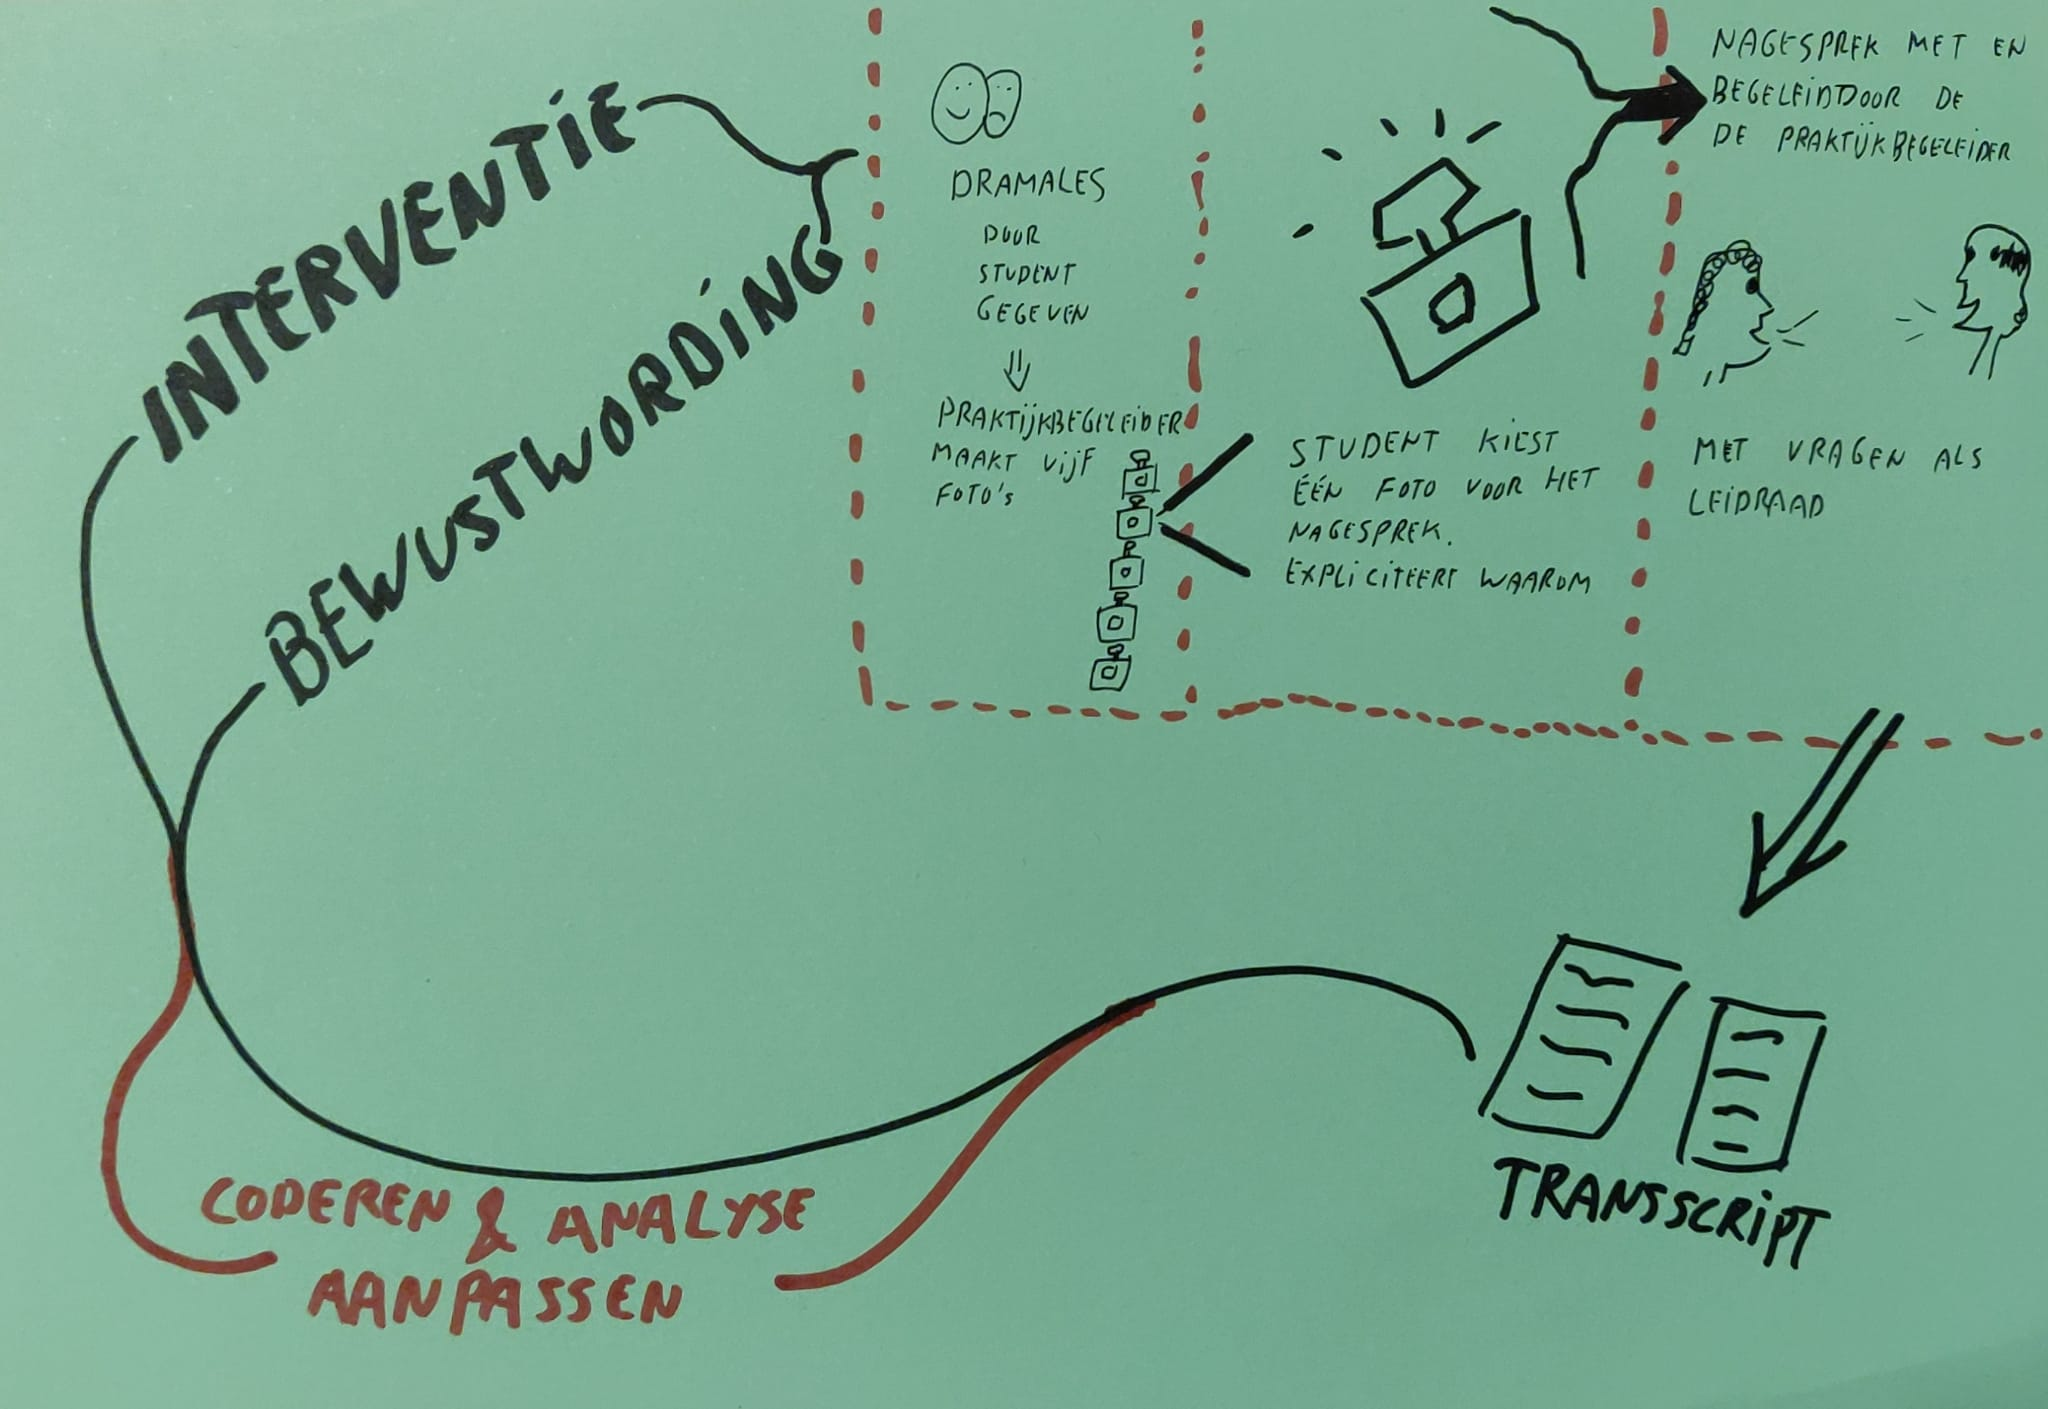 INTERVENTIE
BEWUSTWORDING
DRAMALES
DOOR
STUDENT
GEGEVEN
PRAKTIJKBEGELEIDER
MAAKT VIJF
FOTO'S
STUDENT KIEST
ÉÉN FOTO VOOR HET
NAGESPREK.
EXPLICITEERT WAAROM
NAGESPREK MET EN
BEGELEIDDOOR DE
DE PRAKTIJKBEGELEIDER
MET VRAGEN ALS
LEIDRAAD
TRANSSCRIPT
CODEREN & ANALYSE
AANPASSEN